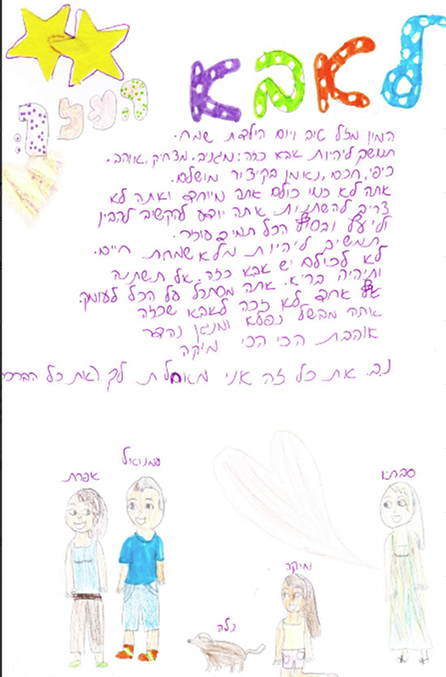 לאבא
המון מזל טוב ויום הולדת שמח.
תמשיך להיות אבא כזה: מגניב, מצחיק, אוהב,
כיפי, חכם, נאמן בקיצור מושלם.
אתה לא כמו כולם אתה מיוחד ואתה לא
צריך להשתנות. אתה יודע להקשיב להבין
ולייעץ ובסוף הכל תמיד עוזר.
תמשיך להיות מלא שמחת חיים.
לא לכולם יש אבא כזה. אל תשתנה
ותהיה בריא. אתה מסתכל על הכל לעומק
אף אחד לא זכה לאבא שכזה
אתה מבשל נפלא ומנגן נהדר
אוהבת הכי הכי מיקה
נ.ב. את כל זה אני מאחלת לך ואת כל הברכו
עמנואל
אפרת
סבתא
מיקה
כלה